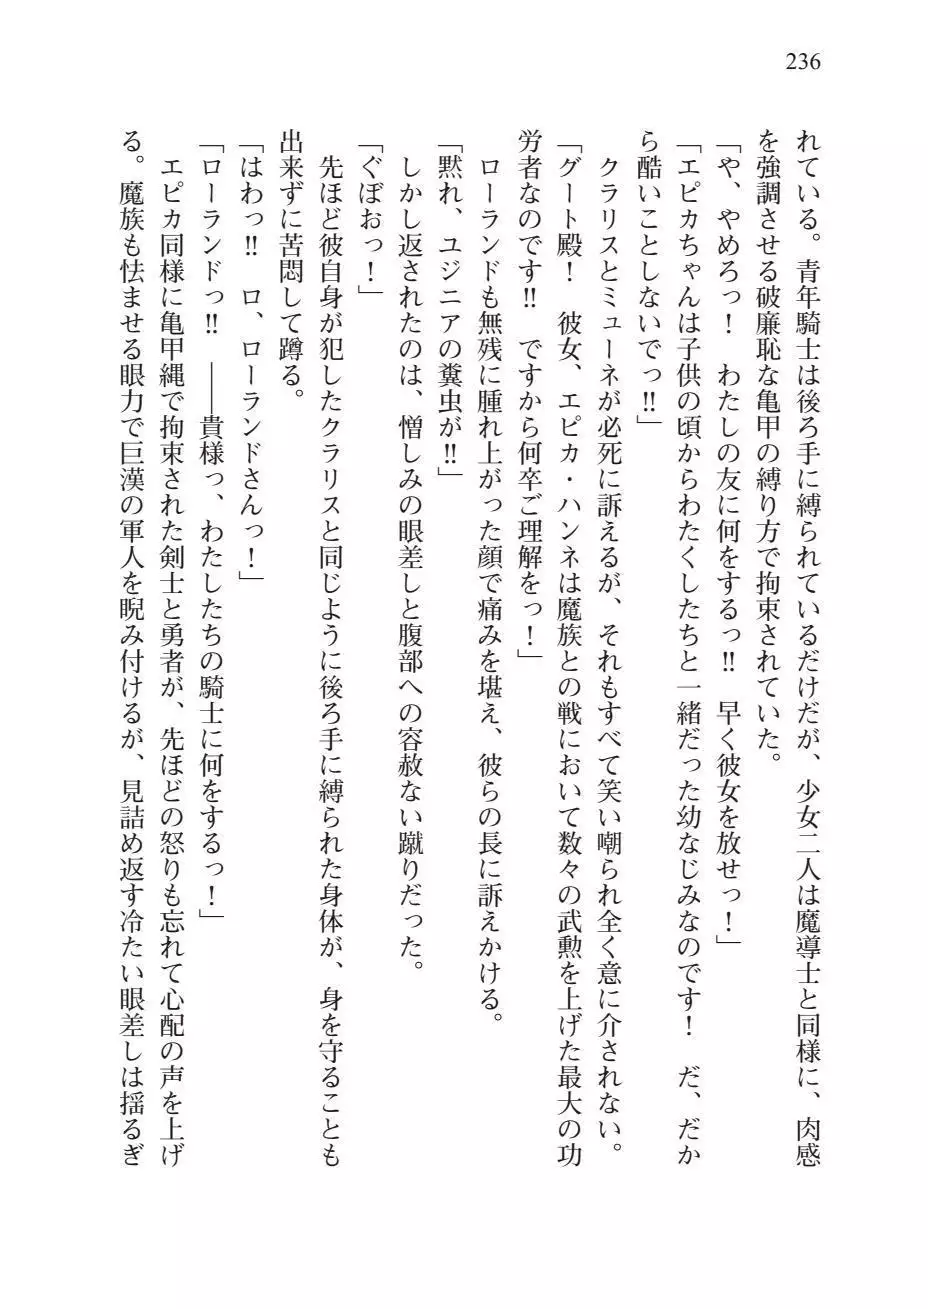 236
れている。青年騎士は後ろ手に縛られているだけだが、少女二人は魔導士と同様に、肉感
を強調させる破廉恥な亀甲の縛り方で拘束されていた。
「や、やめろっ！　わたしの友に何をするっ‼　早く彼女を放せっ！」
「エピカちゃんは子供の頃からわたくしたちと一緒だった幼なじみなのです！　だ、だか
ら酷いことしないでっ‼」
　クラリスとミューネが必死に訴えるが、それもすべて笑い嘲られ全く意に介されない。
「グート殿！　彼女、エピカ・ハンネは魔族との戦において数々の武勲を上げた最大の功
労者なのです‼　ですから何卒ご理解をっ！」
　ローランドも無残に腫れ上がった顔で痛みを堪え、彼らの長に訴えかける。
「黙れ、ユジニアの糞虫が‼」
　しかし返されたのは、憎しみの眼差しと腹部への容赦ない蹴りだった。
「ぐぼおっ！」
　先ほど彼自身が犯したクラリスと同じように後ろ手に縛られた身体が、身を守ることも
出来ずに苦悶して蹲る。
「はわっ‼　ロ、ローランドさんっ！」
「ローランドっ‼　――貴様っ、わたしたちの騎士に何をするっ！」
　エピカ同様に亀甲縄で拘束された剣士と勇者が、先ほどの怒りも忘れて心配の声を上げ
る。魔族も怯ませる眼力で巨漢の軍人を睨み付けるが、見詰め返す冷たい眼差しは揺るぎ